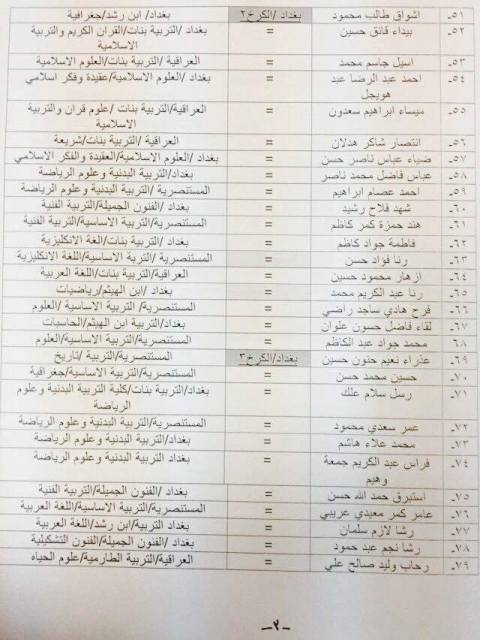 ٥١- اشواق طالب محمود بغداد/الكرخ٢ بغداد/ ابن رشد/جغرافية
٥٢- بيداء فائق حسين = بغداد/التربية بنات/القران الكريم والتربية
الاسلامية
٥٣- اسيل جاسم محمد = العراقية/التربية بنات/العلوم الاسلامية
٥٤- احمد عبد الرضا عبد = بغداد/العلوم الاسلامية/عقيدة وفكر اسلامي
هويجل
٥٥- ميساء ابراهيم سعدون = العراقية/التربية بنات /علوم قران والتربية
الاسلامية
٥٦- انتصار شاكر هدلان = العراقية/التربية بنات/شريعة
٥٧- ضياء عباس ناصر حسن = بغداد/العلوم الاسلامية/العقيدة والفكر الاسلامي
٥٨- عباس فاضل محمد ناصر = بغداد/التربية البدنية وعلوم الرياضة
٥٩- احمد عصام ابراهيم = المستنصرية/التربية البدنية وعلوم الرياضة
٦٠- شهد فلاح رشيد = بغداد /الفنون الجميلة/التربية الفنية
٦١- هند حمزة كمر كاظم = المستنصرية/التربية الاساسية/التربية الفنية
٦٢- فاطمة جواد كاظم = بغداد /التربية بنات/الغة الانكليزية
٦٣- رنا فؤاد حسن = المستنصرية/التربة الاساسية/اللغة الانكليزية
٦٤- ازهار محمود حسين = العراقية/التربية بنات/اللغة العربية
٦٥- رنا عبد الكريم محمد = بغداد /ابن الهيثم/رياضيات
٦٦- فرح هادي ساجد راضي = المستنصرية/التربية الاساسية /العلوم
٦٧- لقاء فاضل حسون علوان = بغداد/التربية ابن الهيثم/الحاسبات
٦٨ محمد جواد عبد الكاظم = المستنصرية/التربية الاساسية/العلوم
٦٩- عذراء نعيم حنون حسين بغداد/الكرخ٣ المستنصرية/التربية /تاريخ
٧٠- حسين محمد حسن = المستنصرية/التربية الاساسية/جغرافية
٧١- رسل سلام علك = بغداد/التربية بنات/كلية التربية البدنية وعلوم
الرياضة
٧٢- عمر سعدي محمود = المستنصرية/التربية البدنية وعلوم الرياضة
٧٣- محمد علاء هاشم = بغداد /التربية البدنية وعلوم الرياضة
٧٤- فراس عبد الكريم جمعة = بغداد /التربية البدنية وعلوم الرياضة
وهيم
٧٥- استبرق حمد الله حسن = بغداد /الفنون الجميلة/التربية الفنية
٧٦- عامر كمر معيدي عريبي = المستنصرية/التربية الاساسية/اللغة العربية
٧٧- رشا لازم سلمان = بغداد/التربية/ابن رشد/اللغة العربية
٧٨- رشا نجم عبد حمود = بغداد /الفنون الجميلة/الفنون التشكيلية
٧٩- رحاب وليد صالح علي = العراقية/التربية الطارمية/علوم الحياه
-٣-